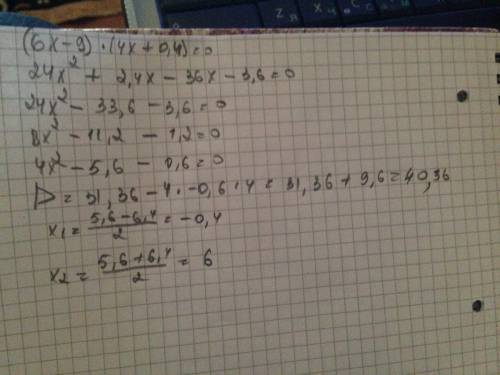 (6x-9)·(4x+0,4)=0
24x² + 2,4x - 36x - 3,6=0
24x² - 33,6 - 3,6=0
8x² - 11,2 - 1,2=0
4x² - 5,6 - 0,6=0
D = 31,36 - 4·-0,6·4 = 31,36 + 9,6 = 40,96
x1 = (5,6-6,4)/2 = -0,4
x2 = (5,6+6,4)/2 = 6